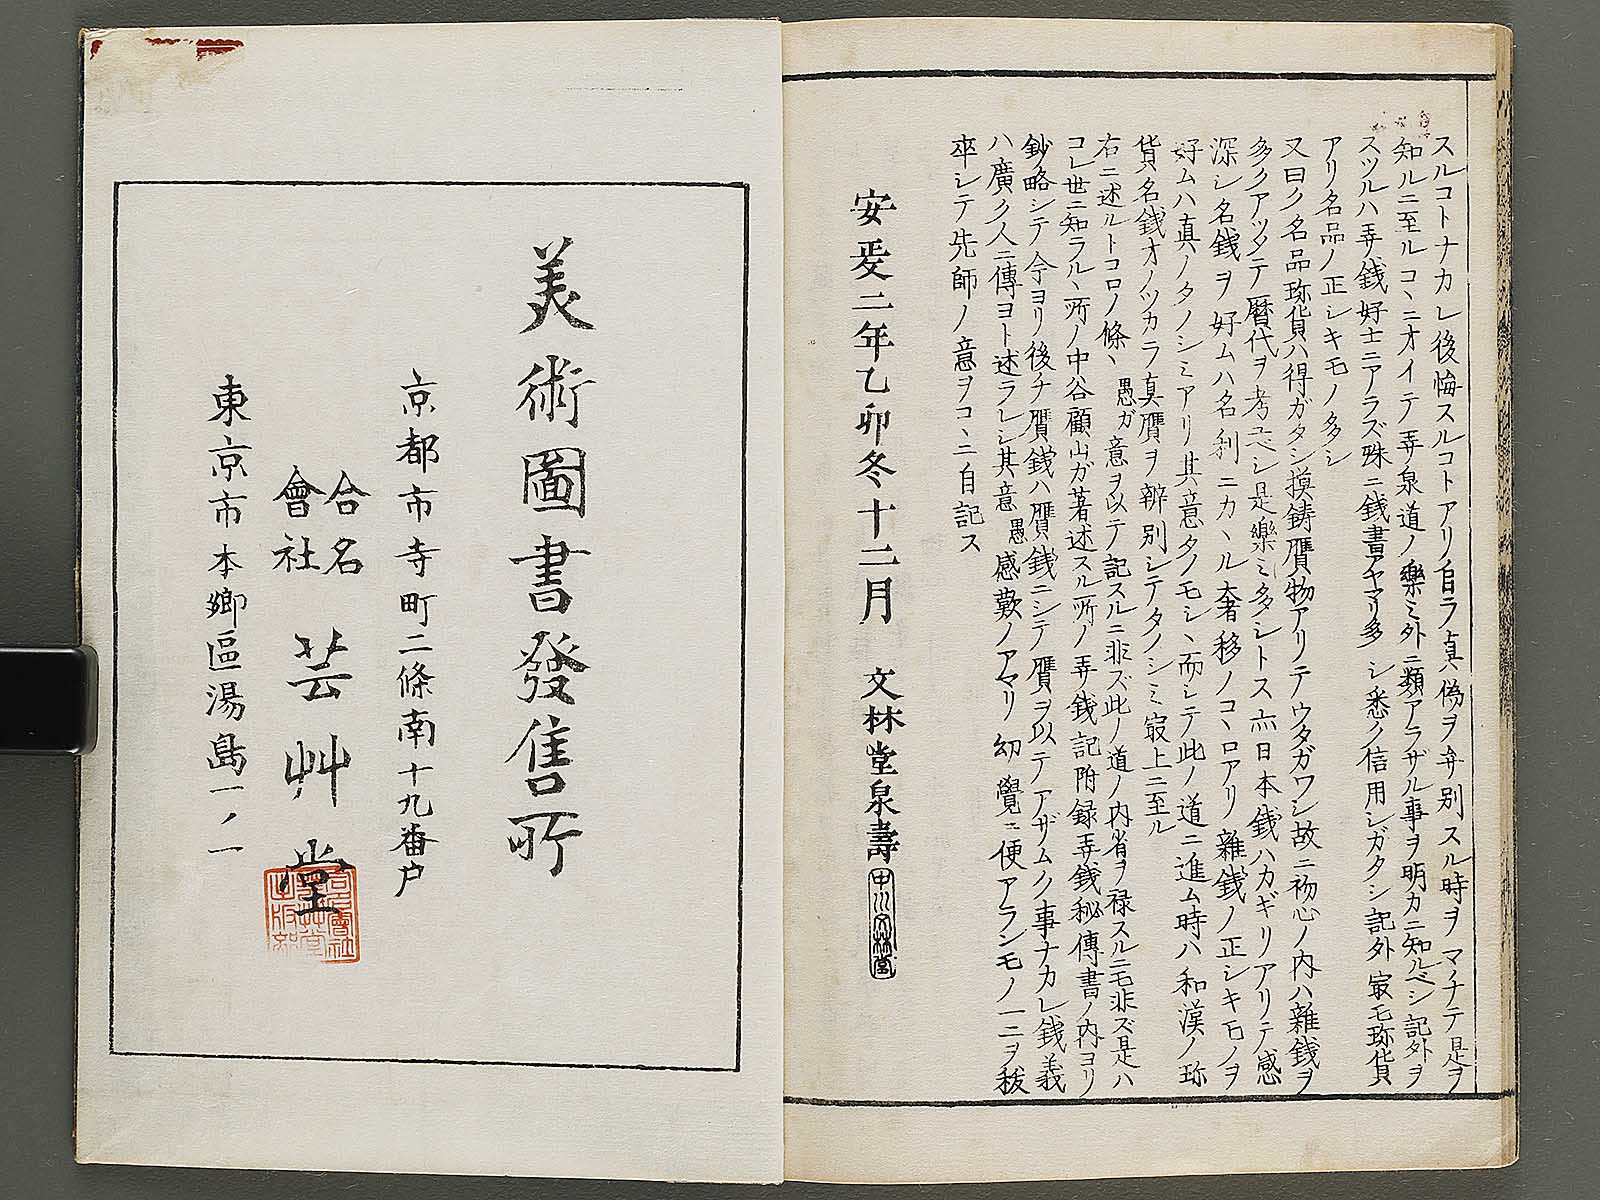 スルコトナカレ後悔スルコトアリ自ラ真偽ヲ弁別スル時ヲマナテ是ヲ
知ルニ至ルコヽニオイテ弄泉道ノ樂ミ外ニ類アラザル事ヲ明カニ知ルベシ記外ヲ
スツルハ弄銭好士ニアラズ殊ニ銭書アヤマリ多シ悉ク信用シガタシ記外寂モ珎貨
アリ名品ノ正シキモノ多シ
又曰ク名品珎貨ハ得ガタシ摸鋳贋物アリテウタガワシ故ニ初心ノ内ハ雜銭ヲ
多クアツメテ暦代ヲ考フベシ是樂ミ多シトス亦日本銭ハカギリアリテ感
深シ名銭ヲ好ムハ名利ニカヽル奢移ノコヽロアリ雜銭ノ正シキモノヲ
好ムハ真ノタノシミアリ其意タクモシヽ而シテ此ノ道ニ進ム時ハ和漢ノ珎
貨名銭オノツカラ真贋ヲ辨別シテタノシミ寂上ニ至ル
右ニ述ルトコロノ條ヽ愚ガ意ヲ以テ記スルニ非ズ此ノ道ノ内省ヲ禄スルニモ非ズ是ハ
コレ世ニ知ラルヽ所ノ中谷顧山ガ著述スル所ノ弄銭記附録弄銭秘傳書ノ内ヨリ
鈔略シテ今ヨリ後チ贋銭ハ贋銭ニシテ贋ヲ以テアザムク事ナカレ銭義
ハ廣ク人ニ傳ヨト述ラレシ其意愚感歎ノアマリ幼覺ニ便アランモノ一二ヲ抜
卒シテ先師ノ意ヲコヽニ自記ス
安政二年乙卯冬十二月 文林堂泉壽
中川文林堂
美術圖書發售所
京都市寺町二條南十九番戸
合名會社 芸艸堂
東京市本郷區湯島一ノ一